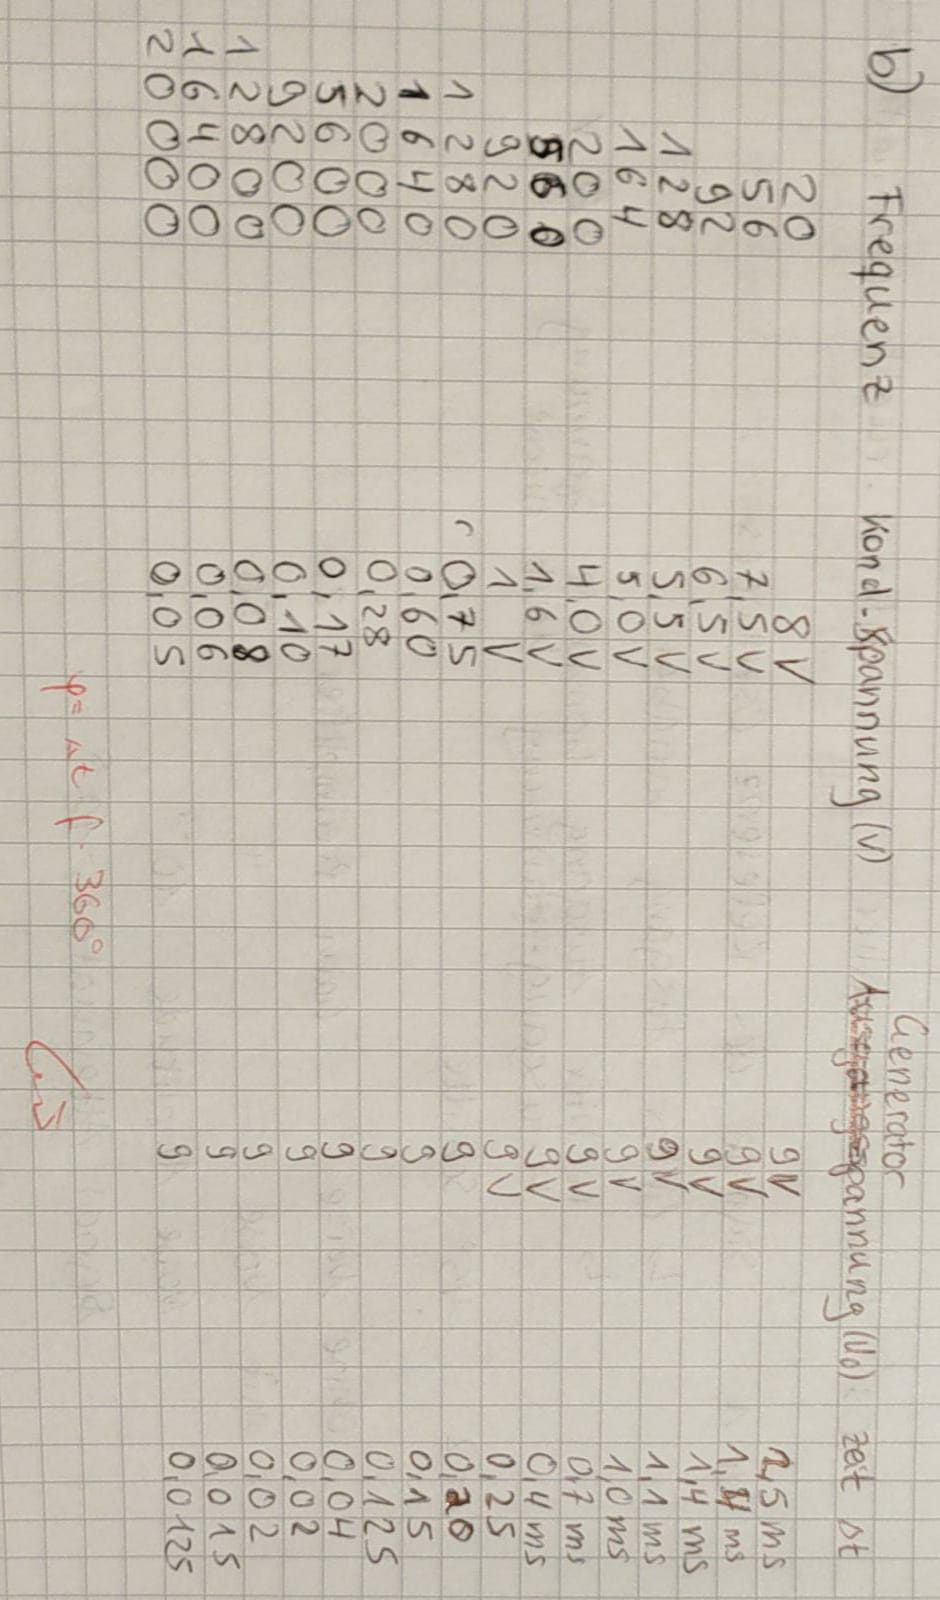 Generator
b) Frequenz Kond.-Spannung (V) spannung (U0) zeit Δt
20 8 V 9V 2,5 ms
56 7,5 V 9V ms
92 6,5 V 9V 1,4 ms
128 5,5 V 9V 1,1 ms
164 5,0 V 9V 1,0 ms
200 4,0 V 9V 0,7 ms
560 1,6 V 9V 0,4 ms
920 1 V 9V 0,25
1280 0,75 9 0,20
1640 0,60 9 0,15
2000 0,28 9 0,125
5600 0,17 9 0,04
9200 0,10 9 0,02
12800 0,08 9 0,02
16400 0,06 9 0,015
20000 0,05 9 0,0125
φ= Δt f · 360°